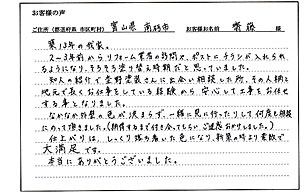 お客様の声
ご住所（都道府県 市区町村） 富山県 南砺市 お客様お名前 齊藤 様
築13年の我家。
2～3年前からリフォーム業者の訪問や、ポストにチラシが入れられ
るようになり、そろそろ塗り替え時期だと思っていました。
知人の紹介で 塗装さんにお会い相談した所、その人柄と
地元で長くお仕事をしている経験から 安心して工事をお任せ
する事となりました。
なかなか外壁の色が決まらず、一緒に見に行ったりして何度も相談
にのって頂きました。（納得するまで付き合ってもらい ご迷惑おかけしました。）
仕上がりは、しっくり落の着いた色になり、新築の時より素敵で
大満足です。
本当にありがとうございました。